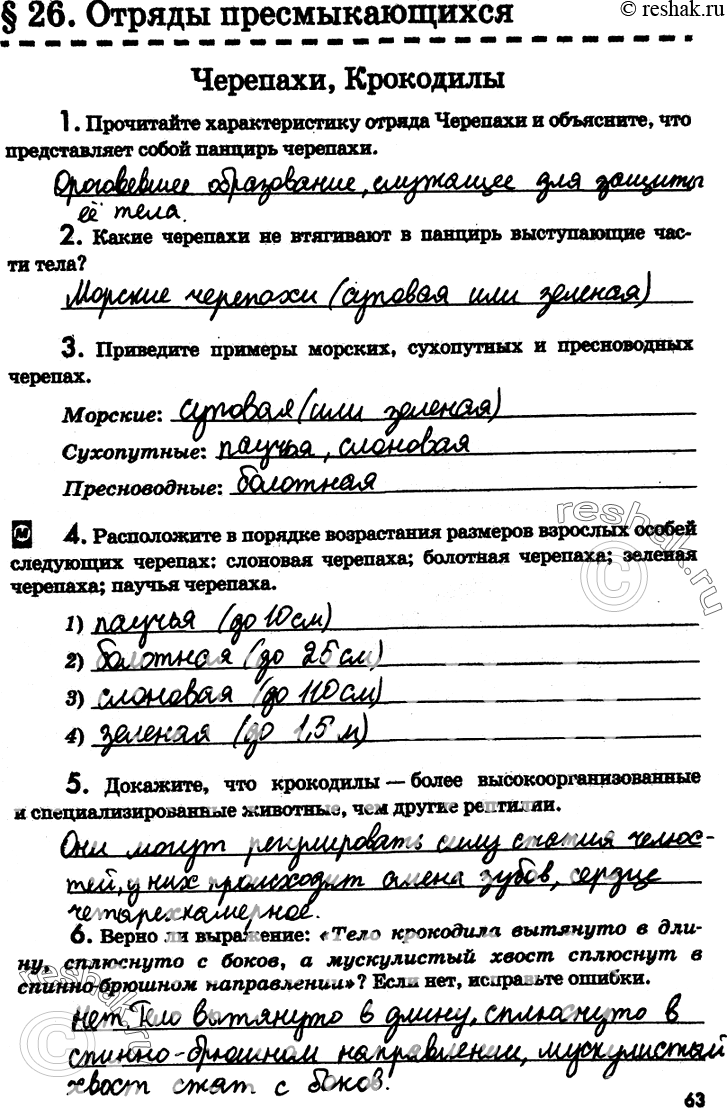 § 26. Отряды пресмыкающихся
© reshak.ru
Черепахи, Крокодилы
1. Прочитайте характеристику отряда Черепахи и объясните, что
представляет собой панцирь черепахи.
Ороговевшее образование, служащее для защиты
её тела.
2. Какие черепахи не втягивают в панцирь выступающие час-
ти тела?
Морские черепахи (суповая или зеленая)
3. Приведите примеры морских, сухопутных и пресноводных
черепах.
Морские: суповая (или зеленая)
Сухопутные: паучья, слоновая
Пресноводные: болотная
М 4. Расположите в порядке возрастания размеров взрослых особей
следующих черепах: слоновая черепаха; болотная черепаха; зеленая
черепаха; паучья черепаха.
1) паучья (до 10 см)
2) болотная (до 25 см)
3) слоновая (до 110 см)
4) зеленая (до 1,5 м)
5. Докажите, что крокодилы — более высокоорганизованные
и специализированные животные, чем другие рептилии.
Они могут регулировать силу сжатия челюс-
тей, у них происходит смена зубов, сердце
четарехкамерное.
6. Верно ли выражение: «Тело крокодила вытянуто в дли-
ну, сплюснуто с боков, а мускулистый хвост сплюснут в
спинно-брюшном направлении»? Если нет, исправьте ошибки.
Нет. Тело вытянуто в длину, сплюснуто в
спинно-брюшном направлении, мускулистый
хвост сжат с боков.
63
reshak.ru
©
reshak.ru
©